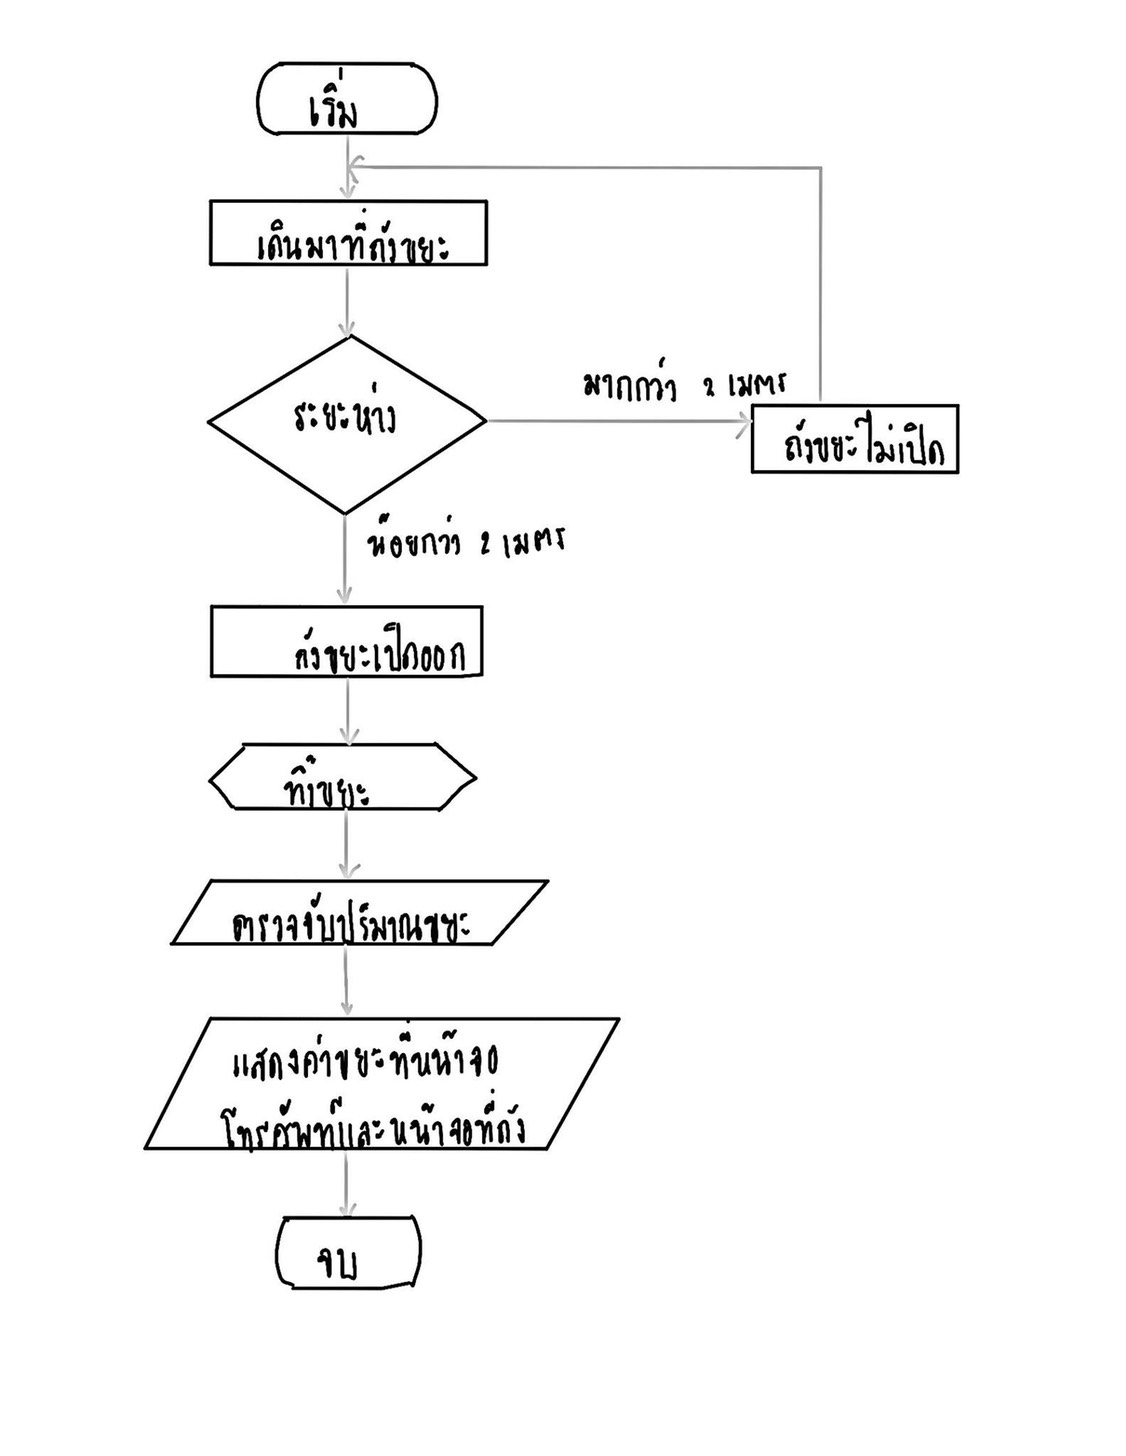 เริ่ม
เดินมาที่ถังขยะ
ระยะห่าง
มากกว่า 2 เมตร
ถังขยะไม่เปิด
น้อยกว่า 2 เมตร
ถังขยะเปิดออก
ทิ้งขยะ
ตรวจจับปริมาณขยะ
แสดงค่าขยะที่หน้าจอ
โทรศัพท์และหน้าจอที่ถัง
จบ